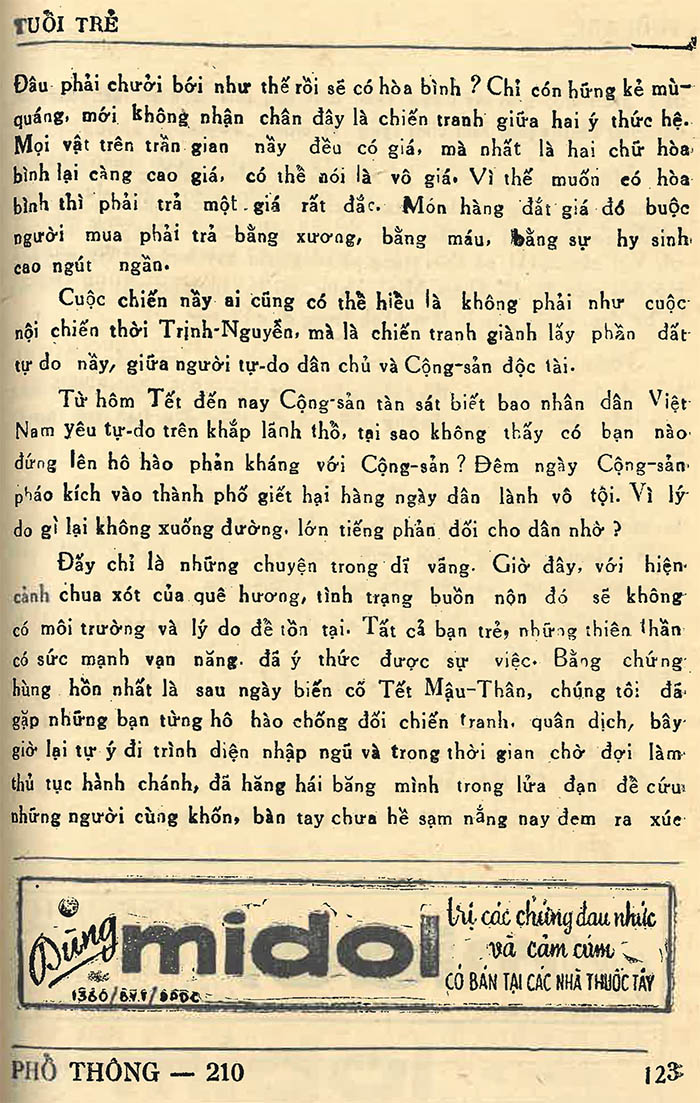 TUỔI TRẺ
Đâu phải chưởi bới như thế rồi sẽ có hòa bình ? Chỉ cón hững kẻ mù-
quáng, mới không nhận chân đây là chiến tranh giữa hai ý thức hệ.
Mọi vật trên trần gian nầy đều có giá, mà nhất là hai chữ hòa
bình lại càng cao giá, có thể nói là vô giá. Vì thế muốn có hòa
bình thì phải trả một giá rất đắc. Món hàng đắt giá đó buộc
người mua phải trả bằng xương, bằng máu, bằng sự hy sinh
cao ngút ngần.
Cuộc chiến nầy ai cũng có thể hiểu là không phải như cuộc
nội chiến thời Trịnh-Nguyễn, mà là chiến tranh giành lấy phần đất
tự do nầy, giữa người tự-do dân chủ và Cộng-sản độc tài.
Từ hôm Tết đến nay Cộng-sản tàn sát biết bao nhân dân Việt
Nam yêu tự-do trên khắp lãnh thổ, tại sao không thấy có bạn nào
đứng lên hô hào phản kháng với Cộng-sản ? Đêm ngày Cộng-sản
pháo kích vào thành phố giết hại hàng ngày dân lành vô tội. Vì lý
do gì lại không xuống đường. lớn tiếng phản đối cho dân nhờ ?
Đấy chỉ là những chuyện trong dĩ vãng. Giờ đây, với hiện
cảnh chua xót của quê hương, tình trạng buồn nộn đó sẽ không
có môi trường và lý do để tồn tại. Tất cả bạn trẻ, những thiên thần
có sức mạnh vạn năng. đã ý thức được sự việc. Bằng chứng
hùng hồn nhất là sau ngày biến cố Tết Mậu-Thân, chúng tôi đã
gặp những bạn từng hô hào chống đối chiến tranh. quân dịch, bây
giờ lại tự ý đi trình diện nhập ngũ và trong thời gian chờ đợi làm
thủ tục hành chánh, đã hăng hái băng mình trong lửa đạn để cứu
những người cùng khốn, bàn tay chưa hề sạm nắng nay đem ra xúc
Dùng midol trị các chứng đau nhức
và cảm cúm
CÓ BÁN TẠI CÁC NHÀ THUỐC TÂY
PHỔ THÔNG — 210
123